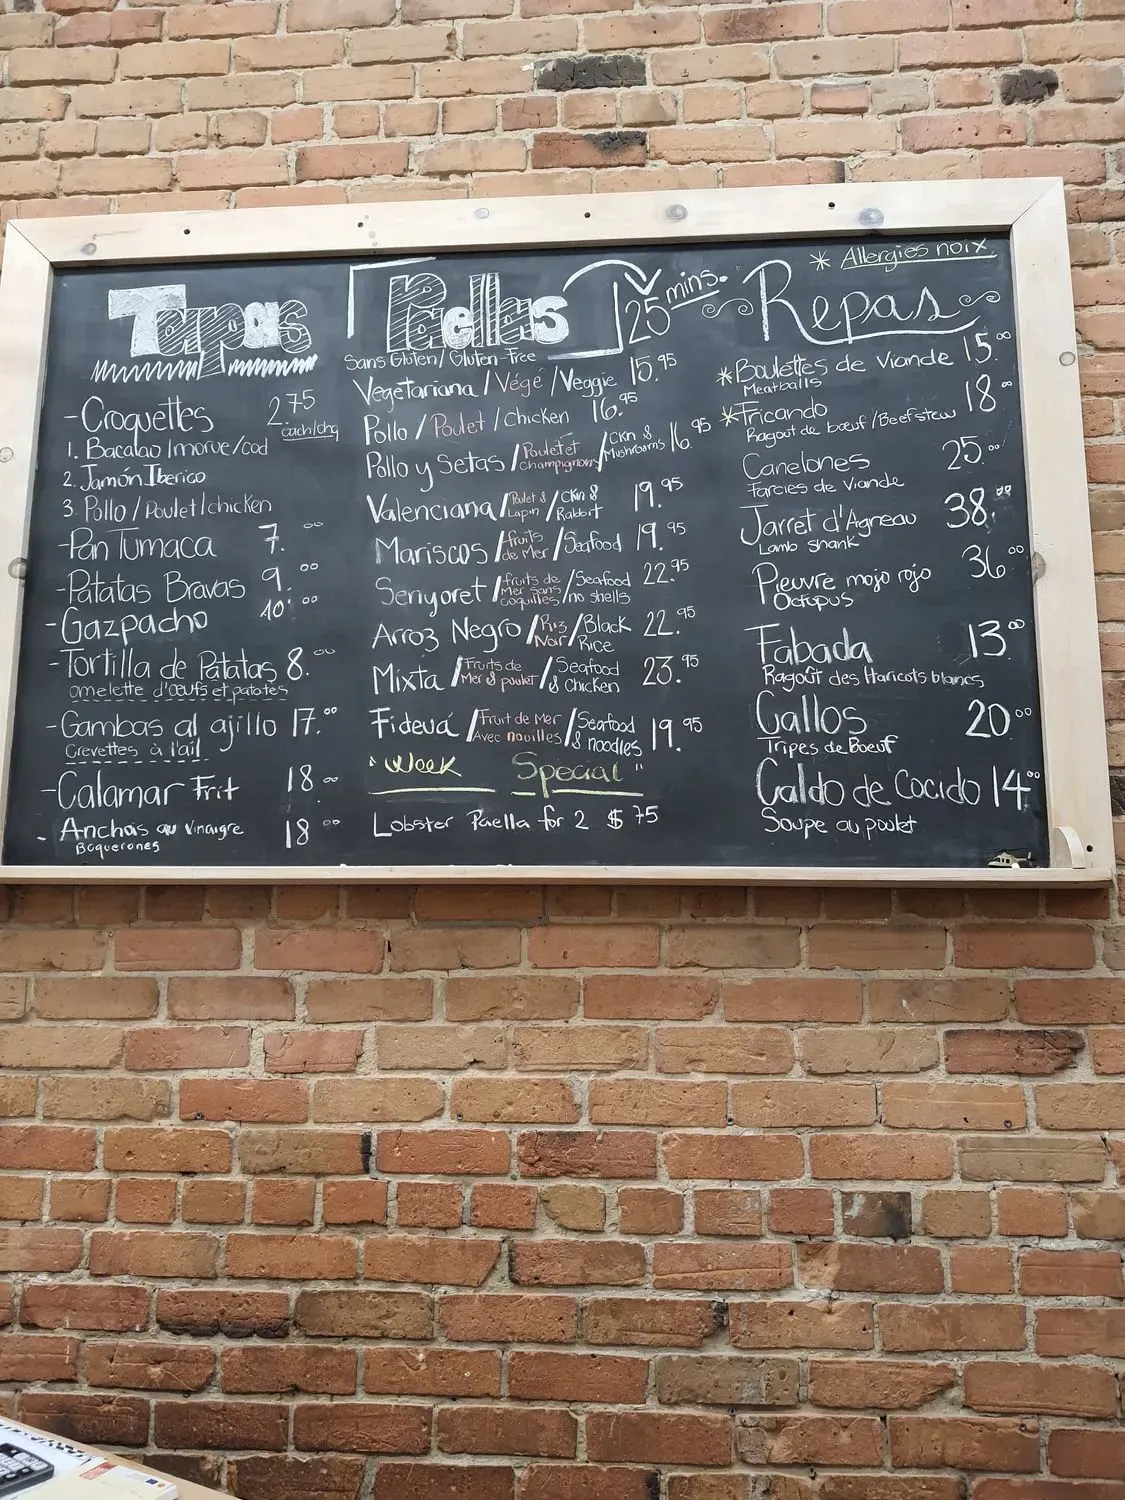 Tapas
- Croquettes 2.75
each/chq
1. Bacalao/morue/cod
2. Jamón Iberico
3. Pollo/Poulet/chicken
- Pan Tumaca 7.00
- Patatas Bravas 9.00
- Gazpacho 10.00
- Tortilla de Patatas 8.00
omelette d'œufs et patates
- Gambas al ajillo 17.00
Crevettes à l'ail
- Calamar Frit 18.00
- Anchois au Vinaigre 18.00
Boquerones
Paellas 25 mins.
Sans Gluten/Gluten-free
Vegetariana/Végé/Veggie 15.95
Pollo/Poulet/Chicken 16.95
Pollo y Setas/Poulet et champignons/Ckn & Mushrooms 16.95
Valenciana/Poulet & Lapin/Ckn & Rabbit 19.95
Mariscos/fruits de Mer/Seafood 19.95
Senyoret/fruits de Mer sans coquilles/Seafood no shells 22.95
Arroz Negro/Riz Noir/Black Rice 22.95
Mixta/Fruits de Mer & poulet/Seafood & Chicken 23.95
Fideuá/Fruit de Mer Avec nouilles/Seafood & noodles 19.95
"Week Special"
Lobster Paella for 2 $75
* Allergies noix
Repas
*Boulettes de Viande 15.00
Meatballs
*Fricando 18.00
Ragout de bœuf/Beef stew
Canelones 25.00
Farcies de Viande
Jarret d'Agneau 38.00
Lamb shank
Pieuvre mojo rojo 36.00
Octopus
Fabada 13.00
Ragoût des Haricots blancs
Gallos 20.00
Tripes de Boeuf
Caldo de Cocido 14.00
Soupe au poulet